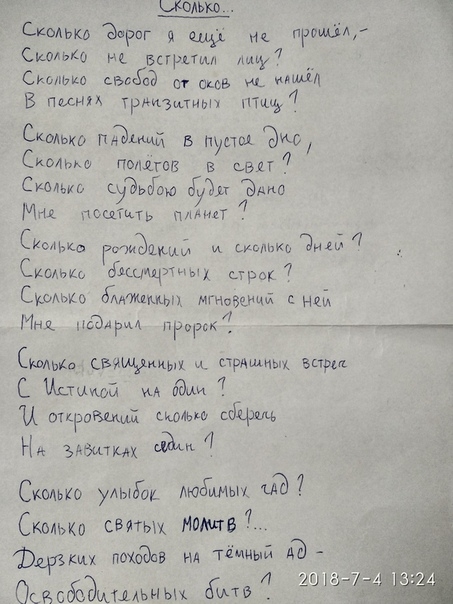 Сколько...
Сколько дорог я ещё не прошёл,-
Сколько не встретил лиц?
Сколько свобод от оков не нашёл
В песнях транзитных птиц?
Сколько падений в пустое дно,
Сколько полётов в свет?
Сколько судьбою будет дано
Мне посетить планет?
Сколько рождений и сколько дней?
Сколько бессмертных строк?
Сколько блаженных мгновений с ней
Мне подарил пророк?
Сколько священных и страшных встреч
С Истиной на один?
И откровений сколько сберечь
На завитках седин?
Сколько улыбок любимых чад?
Сколько святых молитв?...
Дерзких походов на тёмный ад -
Освободительных битв?
2018-7-4 13:24